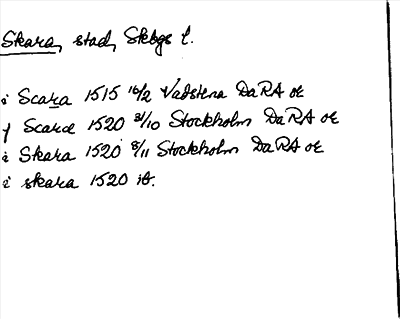 Skara, stad, Skbgs l.
i Scara 1515 16/2 Vadstena DaRA or
f Scaræ 1520 31/10 Stockholm DaRA or
i Skara 1520 8/11 Stockholm DaRA or
i skara 1520 ib.